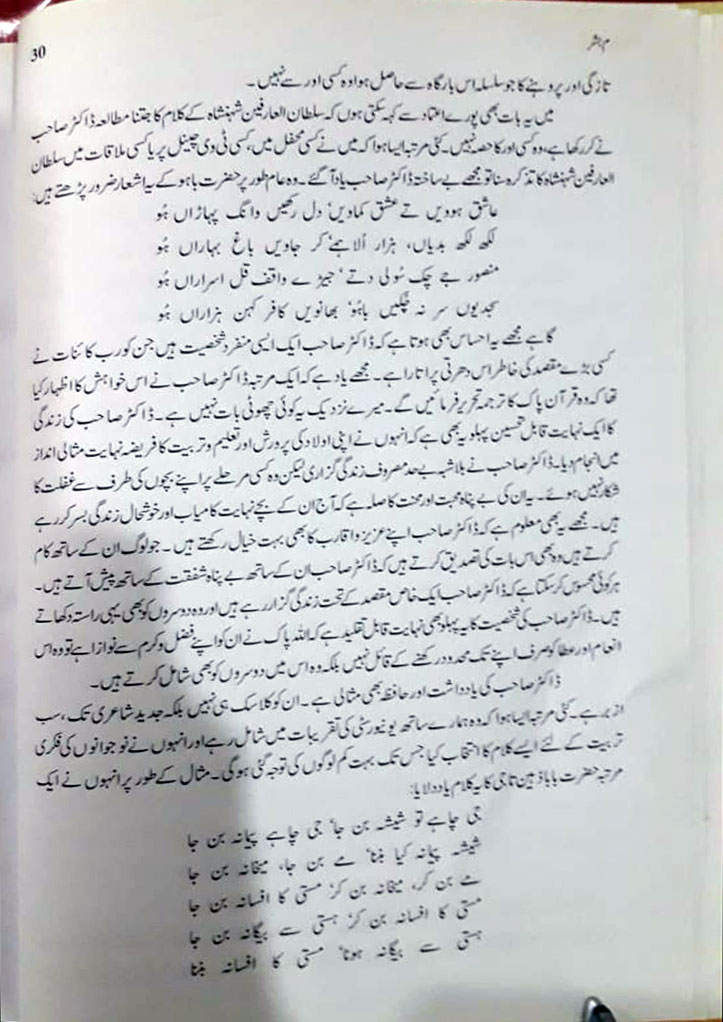 30
تازگی اور پرونے کا جو سلسلہ اس بارگاہ سے حاصل ہوا وہ کسی اور سے نہیں۔
میں یہ بات بھی پورے اعتماد سے کہہ سکتی ہوں کہ سلطان العارفین شہنشاہ کے کلام کا جتنا مطالعہ ڈاکٹر صاحب
نے کر رکھا ہے، وہ کسی اور کا حصہ نہیں۔ کئی مرتبہ ایسا ہوا کہ میں نے کسی محفل میں، کسی ٹی وی چینل پر یا کسی ملاقات میں سلطان
العارفین شہنشاہ کا تذکرہ سنا تو مجھے بے ساختہ ڈاکٹر صاحب یاد آ گئے۔ وہ عام طور پر حضرت باہو کے یہ اشعار ضرور پڑھتے ہیں:
عاشق ہوویں تے عشق کماویں' دل رکھیں وانگ پہاڑاں ھُو
لکھ لکھ بدیاں، ہزار اُلاہمے' کر جاویں باغ بہاراں ھُو
منصور جے چک سُولی دتے' جیہڑے واقف قل اسراراں ھُو
سجدیوں سر نہ چکیں باہُو' بھانویں کافر کہن ہزاراں ھُو
گاہے مجھے یہ احساس بھی ہوتا ہے کہ ڈاکٹر صاحب ایک ایسی منفرد شخصیت ہیں جن کو رب کائنات نے
کسی بڑے مقصد کی خاطر اس دھرتی پر اتارا ہے۔ مجھے یاد ہے کہ ایک مرتبہ ڈاکٹر صاحب نے اس خواہش کا اظہار کیا
تھا کہ وہ قرآن پاک کا ترجمہ تحریر فرمائیں گے۔ میرے نزدیک یہ کوئی چھوٹی بات نہیں ہے۔ ڈاکٹر صاحب کی زندگی
کا ایک نہایت قابل تحسین پہلو یہ بھی ہے کہ انہوں نے اپنی اولاد کی پرورش اور تعلیم و تربیت کا فریضہ نہایت مثالی انداز
میں انجام دیا۔ ڈاکٹر صاحب نے بلاشبہ بے حد مصروف زندگی گزاری لیکن وہ کسی مرحلے پر اپنے بچوں کی طرف سے غفلت کا
شکار نہیں ہوئے۔ یہ ان کی بے پناہ محبت اور محنت کا صلہ ہے کہ آج ان کے بچے نہایت کامیاب اور خوشحال زندگی بسر کر رہے
ہیں۔ مجھے یہ بھی معلوم ہے کہ ڈاکٹر صاحب اپنے عزیز و اقارب کا بھی بہت خیال رکھتے ہیں۔ جو لوگ ان کے ساتھ کام
کرتے ہیں وہ بھی اس بات کی تصدیق کرتے ہیں کہ ڈاکٹر صاحب ان کے ساتھ بے پناہ شفقت کے ساتھ پیش آتے ہیں۔
ہر کوئی محسوس کر سکتا ہے کہ ڈاکٹر صاحب ایک خاص مقصد کے تحت زندگی گزار رہے ہیں اور وہ دوسروں کو بھی یہی راستہ دکھاتے
ہیں۔ ڈاکٹر صاحب کی شخصیت کا یہ پہلو بھی نہایت قابل تقلید ہے کہ اللہ پاک نے ان کو اپنے فضل و کرم سے نوازا ہے تو وہ اس
انعام اور عطا کو صرف اپنے تک محدود رکھنے کے قائل نہیں بلکہ وہ اس میں دوسروں کو بھی شامل کرتے ہیں۔
ڈاکٹر صاحب کی یادداشت اور حافظہ بھی مثالی ہے۔ ان کو کلاسک ہی نہیں بلکہ جدید شاعری تک، سب
ازبر ہے۔ کئی مرتبہ ایسا ہوا کہ وہ ہمارے ساتھ یونیورسٹی کی تقریبات میں شامل رہے اور انہوں نے نوجوانوں کی فکری
تربیت کے لئے ایسے کلام کا انتخاب کیا جس تک بہت کم لوگوں کی توجہ گئی ہو گی۔ مثال کے طور پر انہوں نے ایک
مرتبہ حضرت بابا ذہین تاجی کا یہ کلام یاد دلایا:
جی چاہے تو شیشہ بن جا' جی چاہے پیمانہ بن جا
شیشہ پیمانہ کیا بننا' مے بن جا، میخانہ بن جا
مے بن کر، میخانہ بن کر' مستی کا افسانہ بن جا
مستی کا افسانہ بن کر' ہستی سے بیگانہ بن جا
ہستی سے بیگانہ ہونا' مستی کا افسانہ بننا